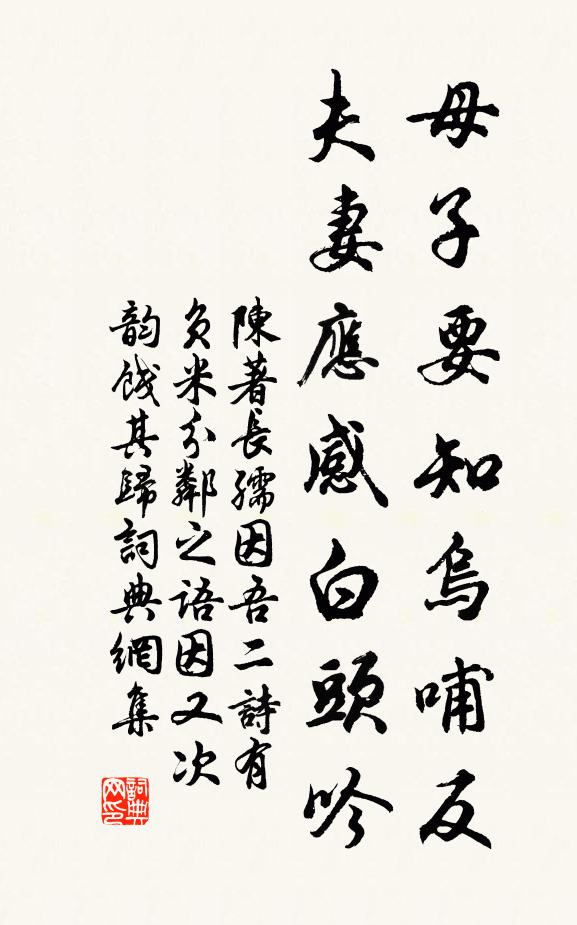 母子要知烏哺反
夫妻應感白頭吟
陳著長孺因吾二詩有
負米分鄰之語因又次
韵餞其歸詞典網集
詞典
网印